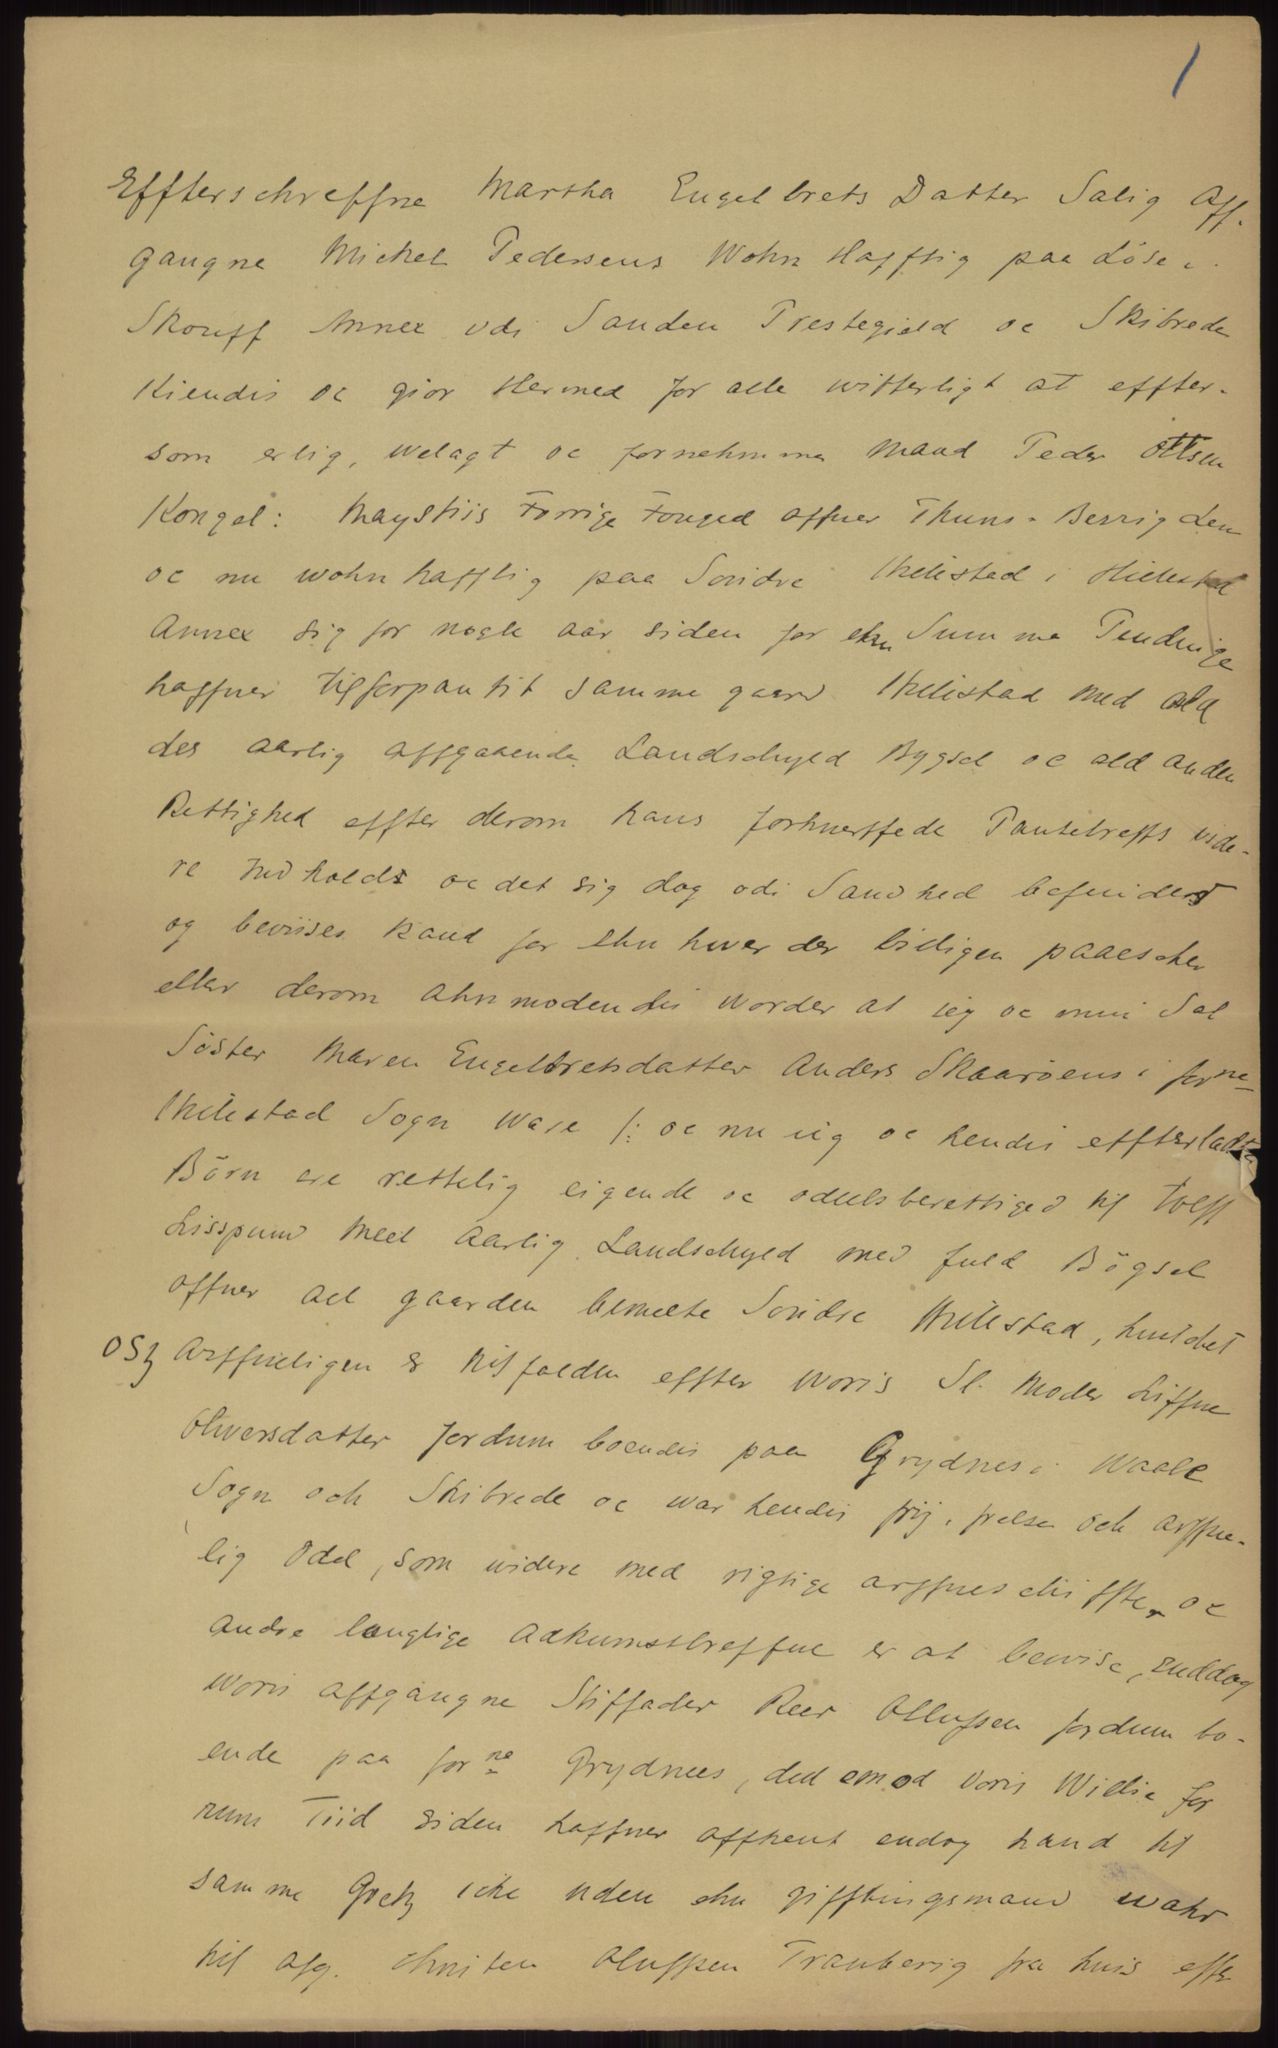 1
Effterschreffne Martha Engelbrets Datter Salig Aff-
gangne Michel Pedersens Wohn Hafftig paa Löse i
Skouff Annex udi Sanden Prestegield oc Skibrede
Kiendis oc giör Hermed for alle witterligt at effter-
som erlig, welagt oc fornehmme Mand Peder Ottsen
Kongel: Maysttiis Forrige Fouged offuer Thuns-Berrig Len
oc nu wohnhafftig paa Söndre Hillestad i Hillestad
Annex sig for nogle aar siden for ehn Summa Pendinge
haffuer tilforpantit samme gaard Hillestad med ald
des aarlig affgaaende Landschyld Bygsel oc ald anden
Rettighed effter derom hans forhuerffede Pantebreffs vide-
re Indholdt oc det sig dog udi Sandhed befindes
og beviises kand for Ehn huer der billigen paaescher
eller derom ahnmodendis worder at jeg oc min Sal
Söster Maren Engelbretsdatter Anders Skaaröens i forne
Hillestad Sogn ware /: oc nu jeg oc hendis effterladte
Börn ere rettelig eigende oc odelsberettiged til tolff
Lisspund Meel Aarlig Landschyld med fuld Bögsel
offuer ald gaarden bemelte Söndre Hillestad, huilchet
osz Arffueligen er tilfalden effter woris Sl. Moder Siffue
Oliversdatter fordum boendis paa Grydnes i Waale
Sogn och Skibrede oc war hendis frij, frelse och arffue-
lig Odel, som widere med rigtige arffueschiffter oc
andre lauglige Adkumstbreffue er at bewise, Enddog
woris affgangne Stiffader Reer Olluffsen fordum bo-
ende paa forne Grydnees, ded emod voris Willie for
rum Tiid siden haffuer affhent endog hand til
samme Goetz icke uden ehn gifftingsmand wahr
til afg. Christen Oluffsen Tranberig fra huis effter